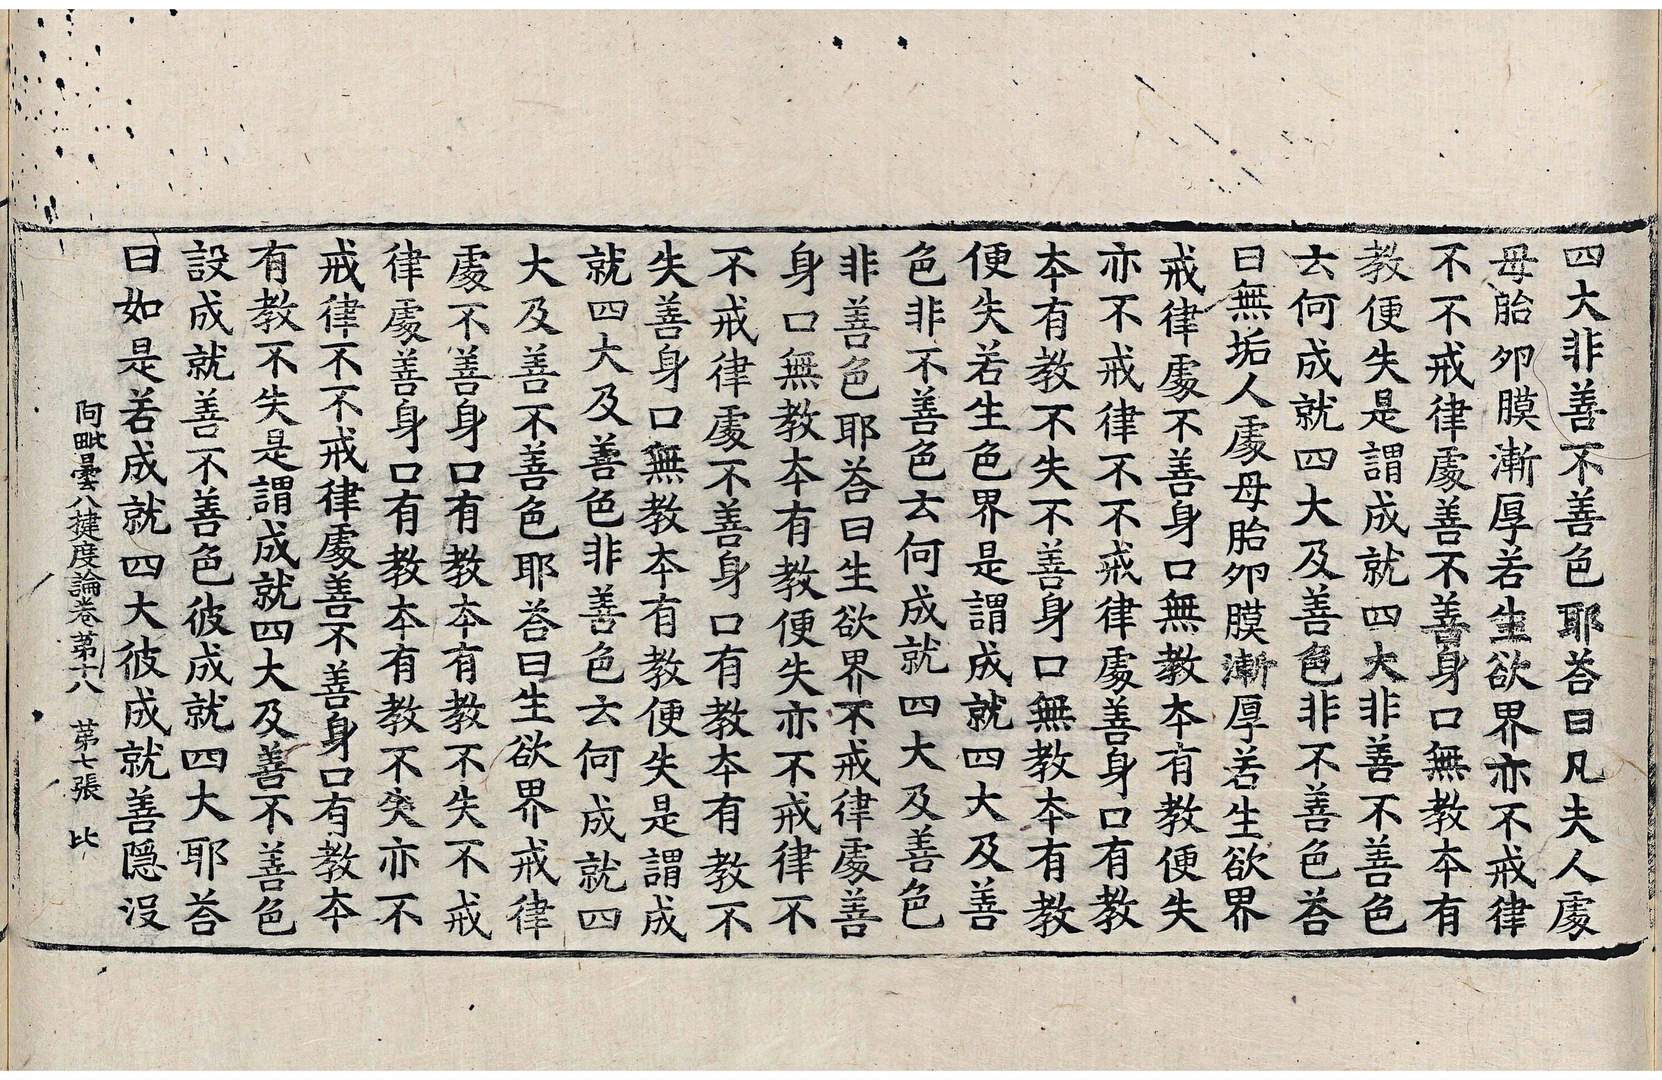 四大非善不善色耶荅曰凡夫人處
母胎卵膜漸厚若生欲界亦不戒律
不不戒律處善不善身口無教夲有
教便失是謂成就四大非善不善色
云何成就四大及善色非不善色荅
曰無垢人處母胎卵膜漸厚若生欲界
戒律處不善身口無教夲有教便失
亦不戒律不不戒律處善身口有教
夲有教不失不善身口無教夲有教
便失若生色界是謂成就四大及善
色非不善色云何成就四大及善色
非善色耶荅曰生欲界不戒律處善
身口無教夲有教便失亦不戒律不
不戒律處不善身口有教夲有教不
失善身口無教夲有教便失是謂成
就四大及善色非善色云何成就四
大及善不善色耶荅曰生欲界戒律
處不善身口有教夲有教不失不戒
律處善身口有教夲有教不失亦不
戒律不不戒律處善不善身口有教夲
有教不失是謂成就四大及善不善色
設成就善不善色彼成就四大耶荅
曰如是若成就四大彼成就善隱没
阿毗曇八揵度論卷第十八 第七張 比